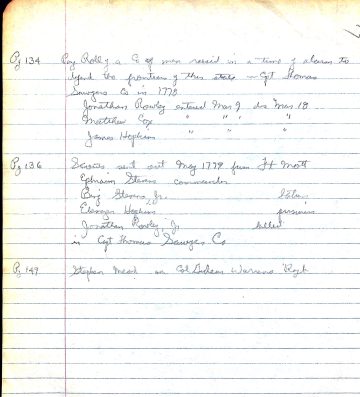 Pg 134 Pay Roll of a Co of men raised in a time of alarm to
defend the frontiers of this state in Cpt Thomas
Sawyers Co in 1778
Jonathan Rowley entered Mar 9 dis Mar 18
Matthew Cox " " " "
James Hopkins " " "
Pg 136 Scouts sent out May 1779 from Ft Mott
Ephraim Stevens commander
Benj Stevens, Jr. taken
Ebenezer Hopkins prisoners
Jonathan Rowley, Jr killed
in Cpt Thomas Sawyer Co
Pg 149 Stephen Mead in Col Warrens Regt